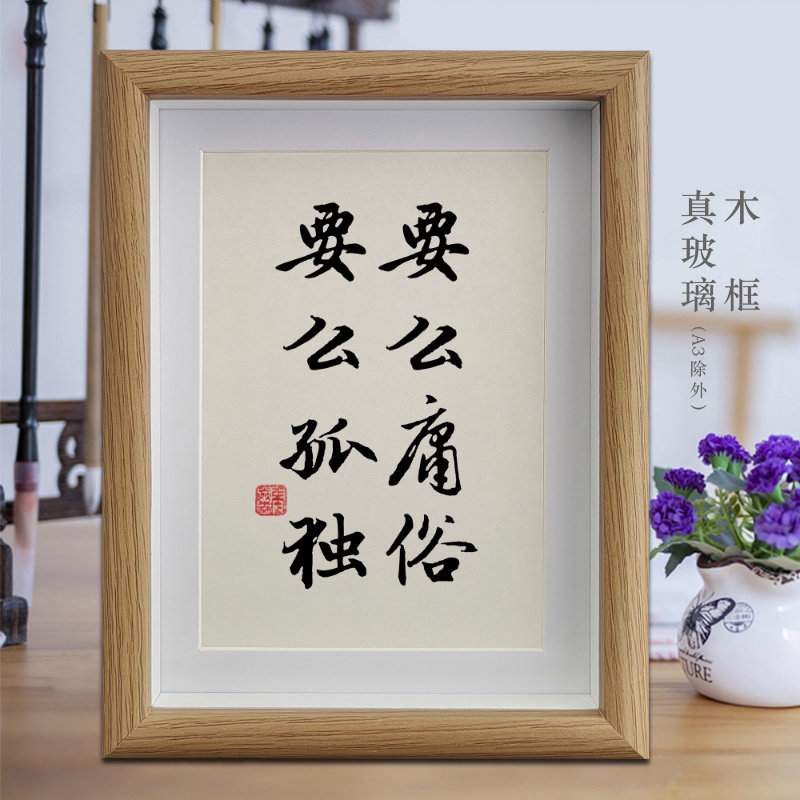 要么庸俗
要么孤独
木框
真玻璃
(A3除外)
TURE